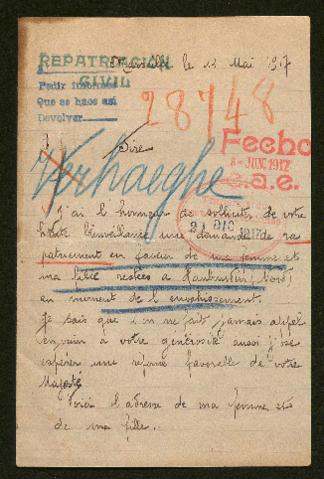 Marseille le 12 Mai 1917
REPATRIACIÓN
CIVIL
Pedir informes
Que se hace así
Devolver
28748
Sire
Fecho
8-JUN.1917
c.a.e.
Verhaeghe
J'ai l'honneur de solliciter de votre
haute bienveillance une demande de ra
21 DIC 1917
patriement en faveur de ma femme et
ma fille restées à Haubourdin (Nord)
au moment de l'envahissement.
Je sais que l'on ne fait jamais appel
en vain à votre générosité aussi j'ose
espérer une réponse favorable de votre
Majesté
Voici l'adresse de ma femme et
de ma fille.